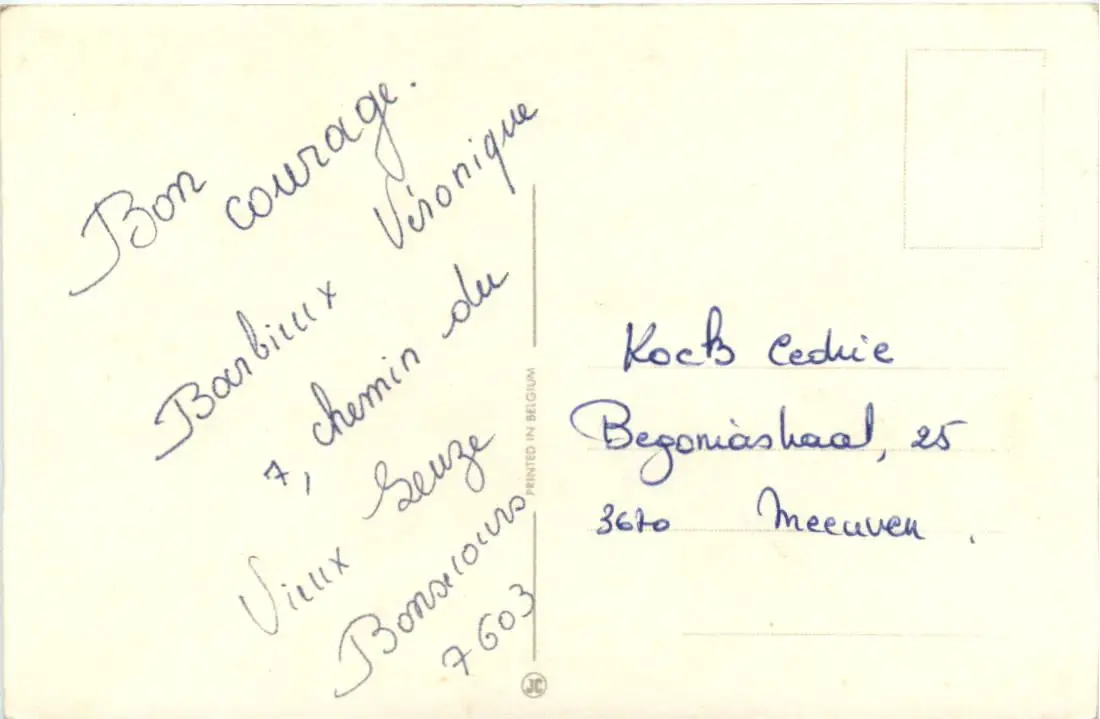 Bon
courage.
Barbieux Véronique
7, chemin du
Vieux
Bonsecours
7603
PRINTED IN BELGIUM
JC
Kock Cedric
Begoniastraat, 25
3670 Meeuwen.